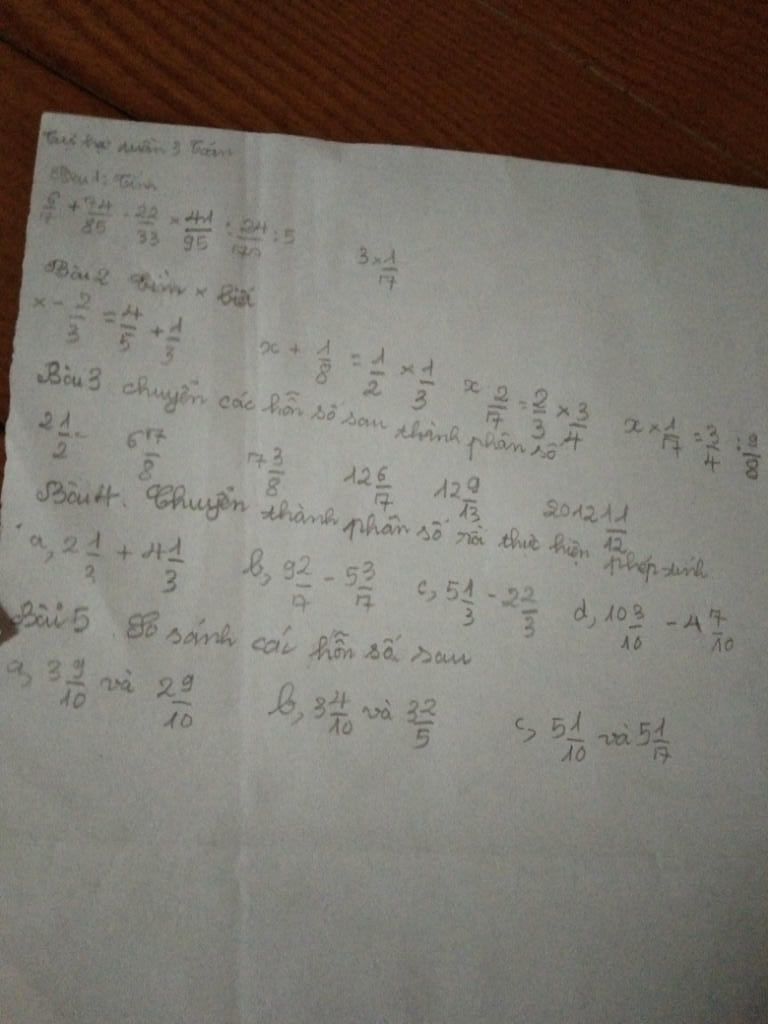 tuần 3 Toán
Bài 1: Tính
+ 74/85 - 22/33 × 41/95 : 24/175 : 5 3 × 1/17
Bài 2 tìm x biết
x - 2/3 = 4/5 + 1/3 x + 1/8 = 1/2 × 1/3 x 2/17 = 2/3 × 3/4 x × 1/17 = 3/4 : 9/8
Bài 3 chuyển các hỗn số sau thành phân số
2 1/2 6 17/8 17 3/8 12 6/17 12 9/13 2012 11/12
Bài 4. Chuyển thành phân số rồi thực hiện phép tính
a, 2 1/3 + 4 1/3 b, 9 2/17 - 5 3/17 c, 5 1/3 - 2 2/3 d, 10 3/10 - 4 7/10
Bài 5 So sánh các hỗn số sau
a, 3 9/10 và 2 9/10 b, 3 4/10 và 3 2/5 c, 5 1/10 và 5 1/17